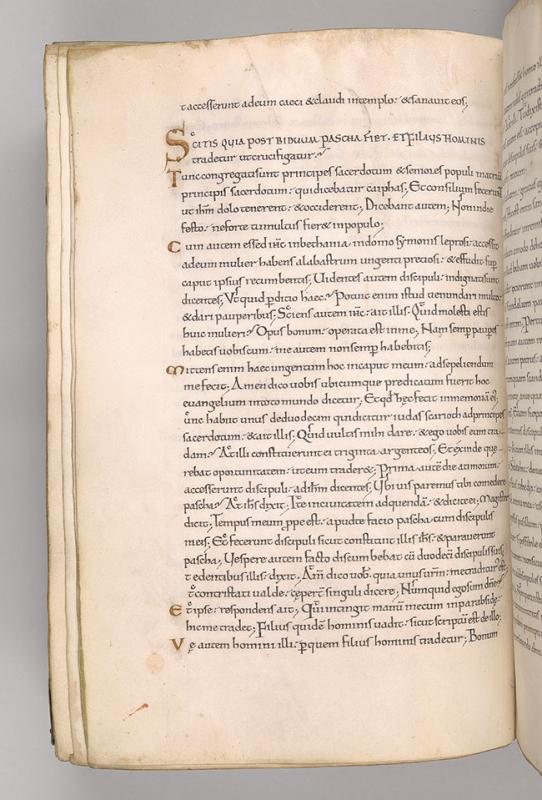 t accesserunt ad eum caeci & claudi in templo. & sanavit eos;
Scitis quia post biduum pascha fiet. et filius hominis
tradetur ut crucifigatur.
Tunc congregati sunt principes sacerdotum & seniores populi in atriū
principis sacerdotum. qui dicebatur caiphas; Et consilium fecerunt
ut ihm dolo tenerent. & occiderent; Dicebant autem; Non in die
festo. ne forte tumultus fier& in populo;
Cum autem ess& ihc in bethania. in domo symonis leprosi. accessit
ad eum mulier habens alabastrum ungenti preciosi. & effudit sup
caput ipsius recumbentis; Videntes autem discipuli. indignati sunt
dicentes; Vt quid pditio haec. Potuit enim istud venundari multo.
& dari pauperibus; Sciens autem ihc. ait illis. Quid molesti estis
huic mulieri. Opus bonum. operata est in me; Nam semp paupes
habetis vobiscum. me autem non semp habebitis;
Mittens enim haec ungentum hoc in caput meum. ad sepeliendum
me fecit; Amen dico vobis ubicumque predicatum fuerit hoc
evangelium in toto mundo dicetur; Et qd hec fecit in memoriā ei;
unc habiit unus de duodecim qui dicitur iudas scarioth ad principes
sacerdotum. & ait illis; Quid vultis mihi dare. & ego vobis eum tra
dam. At illi constituerunt ei triginta argenteos; Et exinde quę
rebat oportunitatem. ut eum trader&; Prima autē die azimorum.
accesserunt discipuli. ad ihm dicentes; Vbi vis paremus tibi comedere
pascha. At ihs dxit; Ite in civitatem ad quendā. & dicite ei; Magister
dicit; Tempus meum ppe est. aput te facio pascha cum discipulis
meis; Et fecerunt discipuli sicut constituit illis ihs. & paraverunt
pascha; Vespere autem facto discumbebat cū duodecī discipulis suis;
t edentibus illis. dxit; Am dico vob. quia unus vrm. me traditur ē;
t contristati valde. cepert singuli dicere; Numquid ego sum dne.
Et ipse. respondens ait; Qui intingit manū mecum in parabside.
hic me tradet; Filius quidē hominis vadit. sicut scriptū est de illo;
Vę autem homini illi. p quem filius hominis tradetur; Bonum